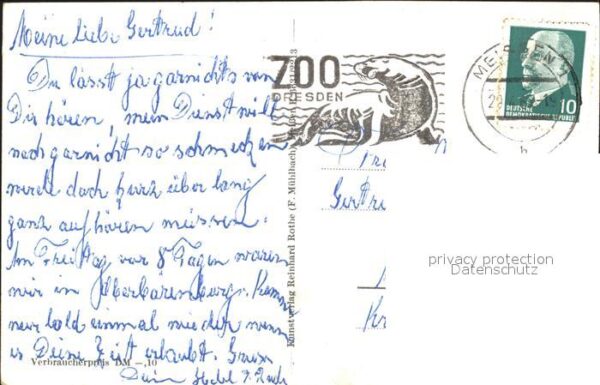 Meine liebe Gertrud!
Du lasst ja garnichts von
Dir hören, mein Dienst will
noch garnicht so schmecken
werde doch kurz über lang
ganz aufhören müssen.
Am Freitag vor 8 Tagen waren
wir in Oberbärenburg. Komme
nur bald einmal wieder wenn
es Deine Zeit erlaubt. Gruss
Verbraucherpreis DM -,10
Dein
Kunstverlag Reinhard Rothe (F. Mühlbach)
ZOO
DRESDEN
MEISSEN
10
DEUTSCHE
DEMOKRATISCHE REPUBLIK
Gertr
privacy protection
Datenschutz